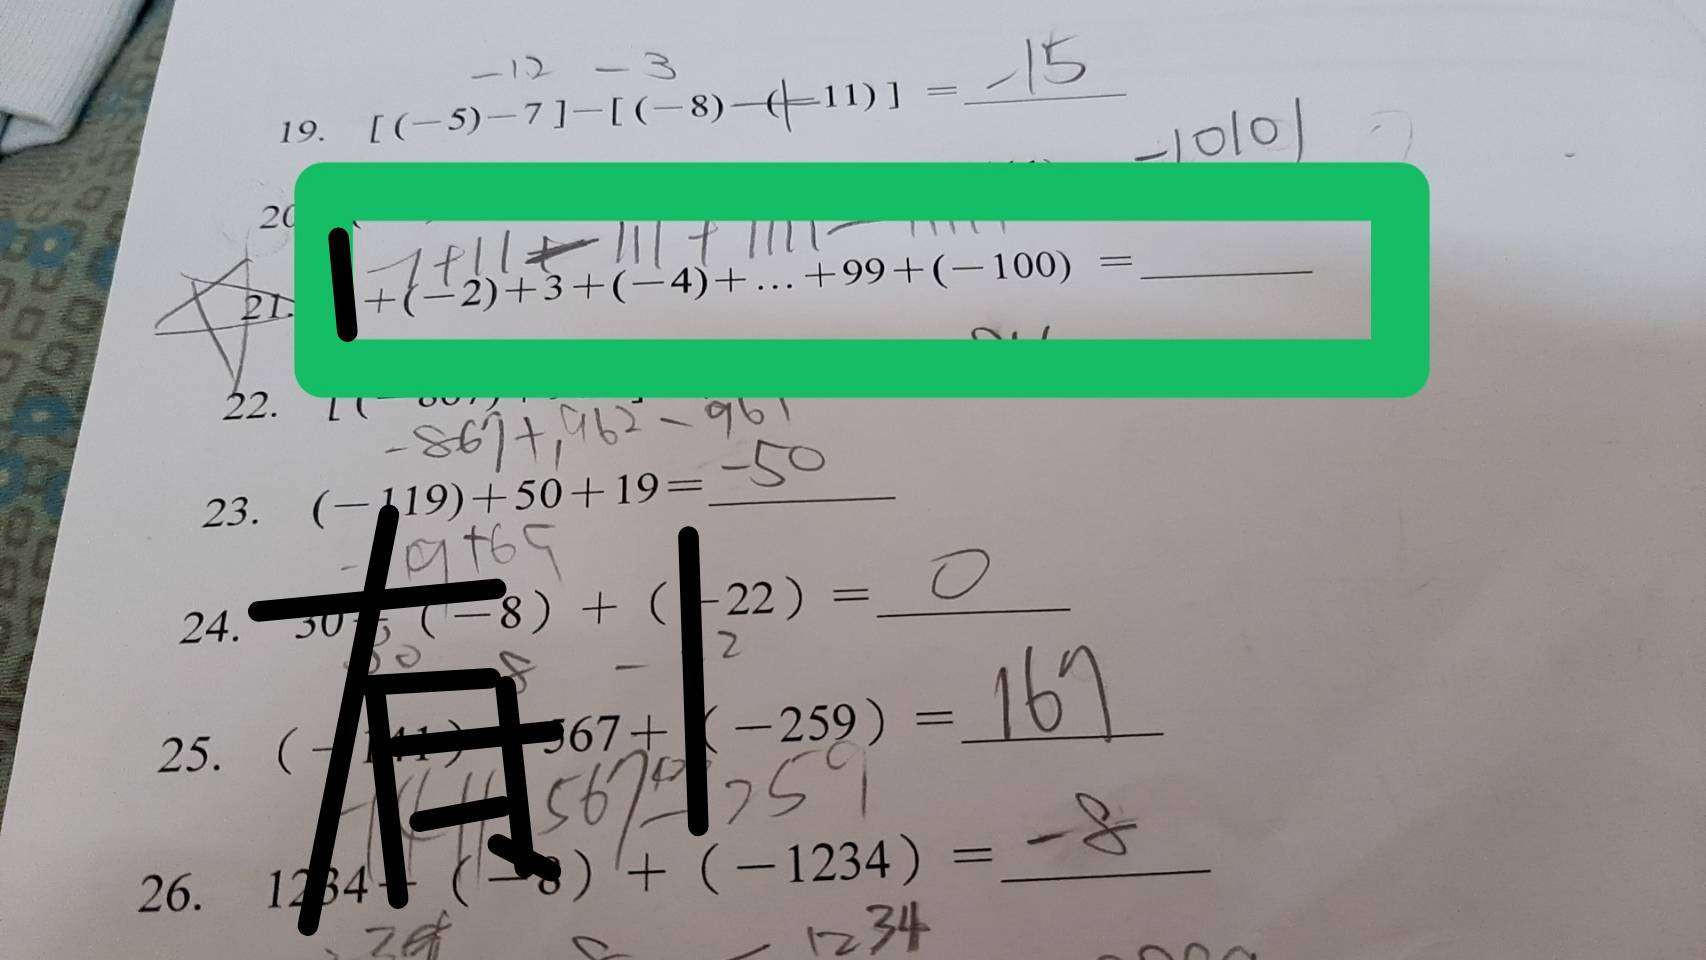 -12 -3
19. [(-5)-7]-[(-8)-(-11)] = -15
-10101
20
-1+11-111+1111-11111
21. 1+(-2)+3+(-4)+…+99+(-100) =
22. [(-867)+
-867+1,962-961
23. (-119)+50+19= -50
-19+69
24. 30+(-8)+(-22) = 0
30 8 - 2
25. (-141)+567+(-259) = 167
-141 567-259
26. 1234+(-8)+(-1234) = -8
8 - 1234
有1